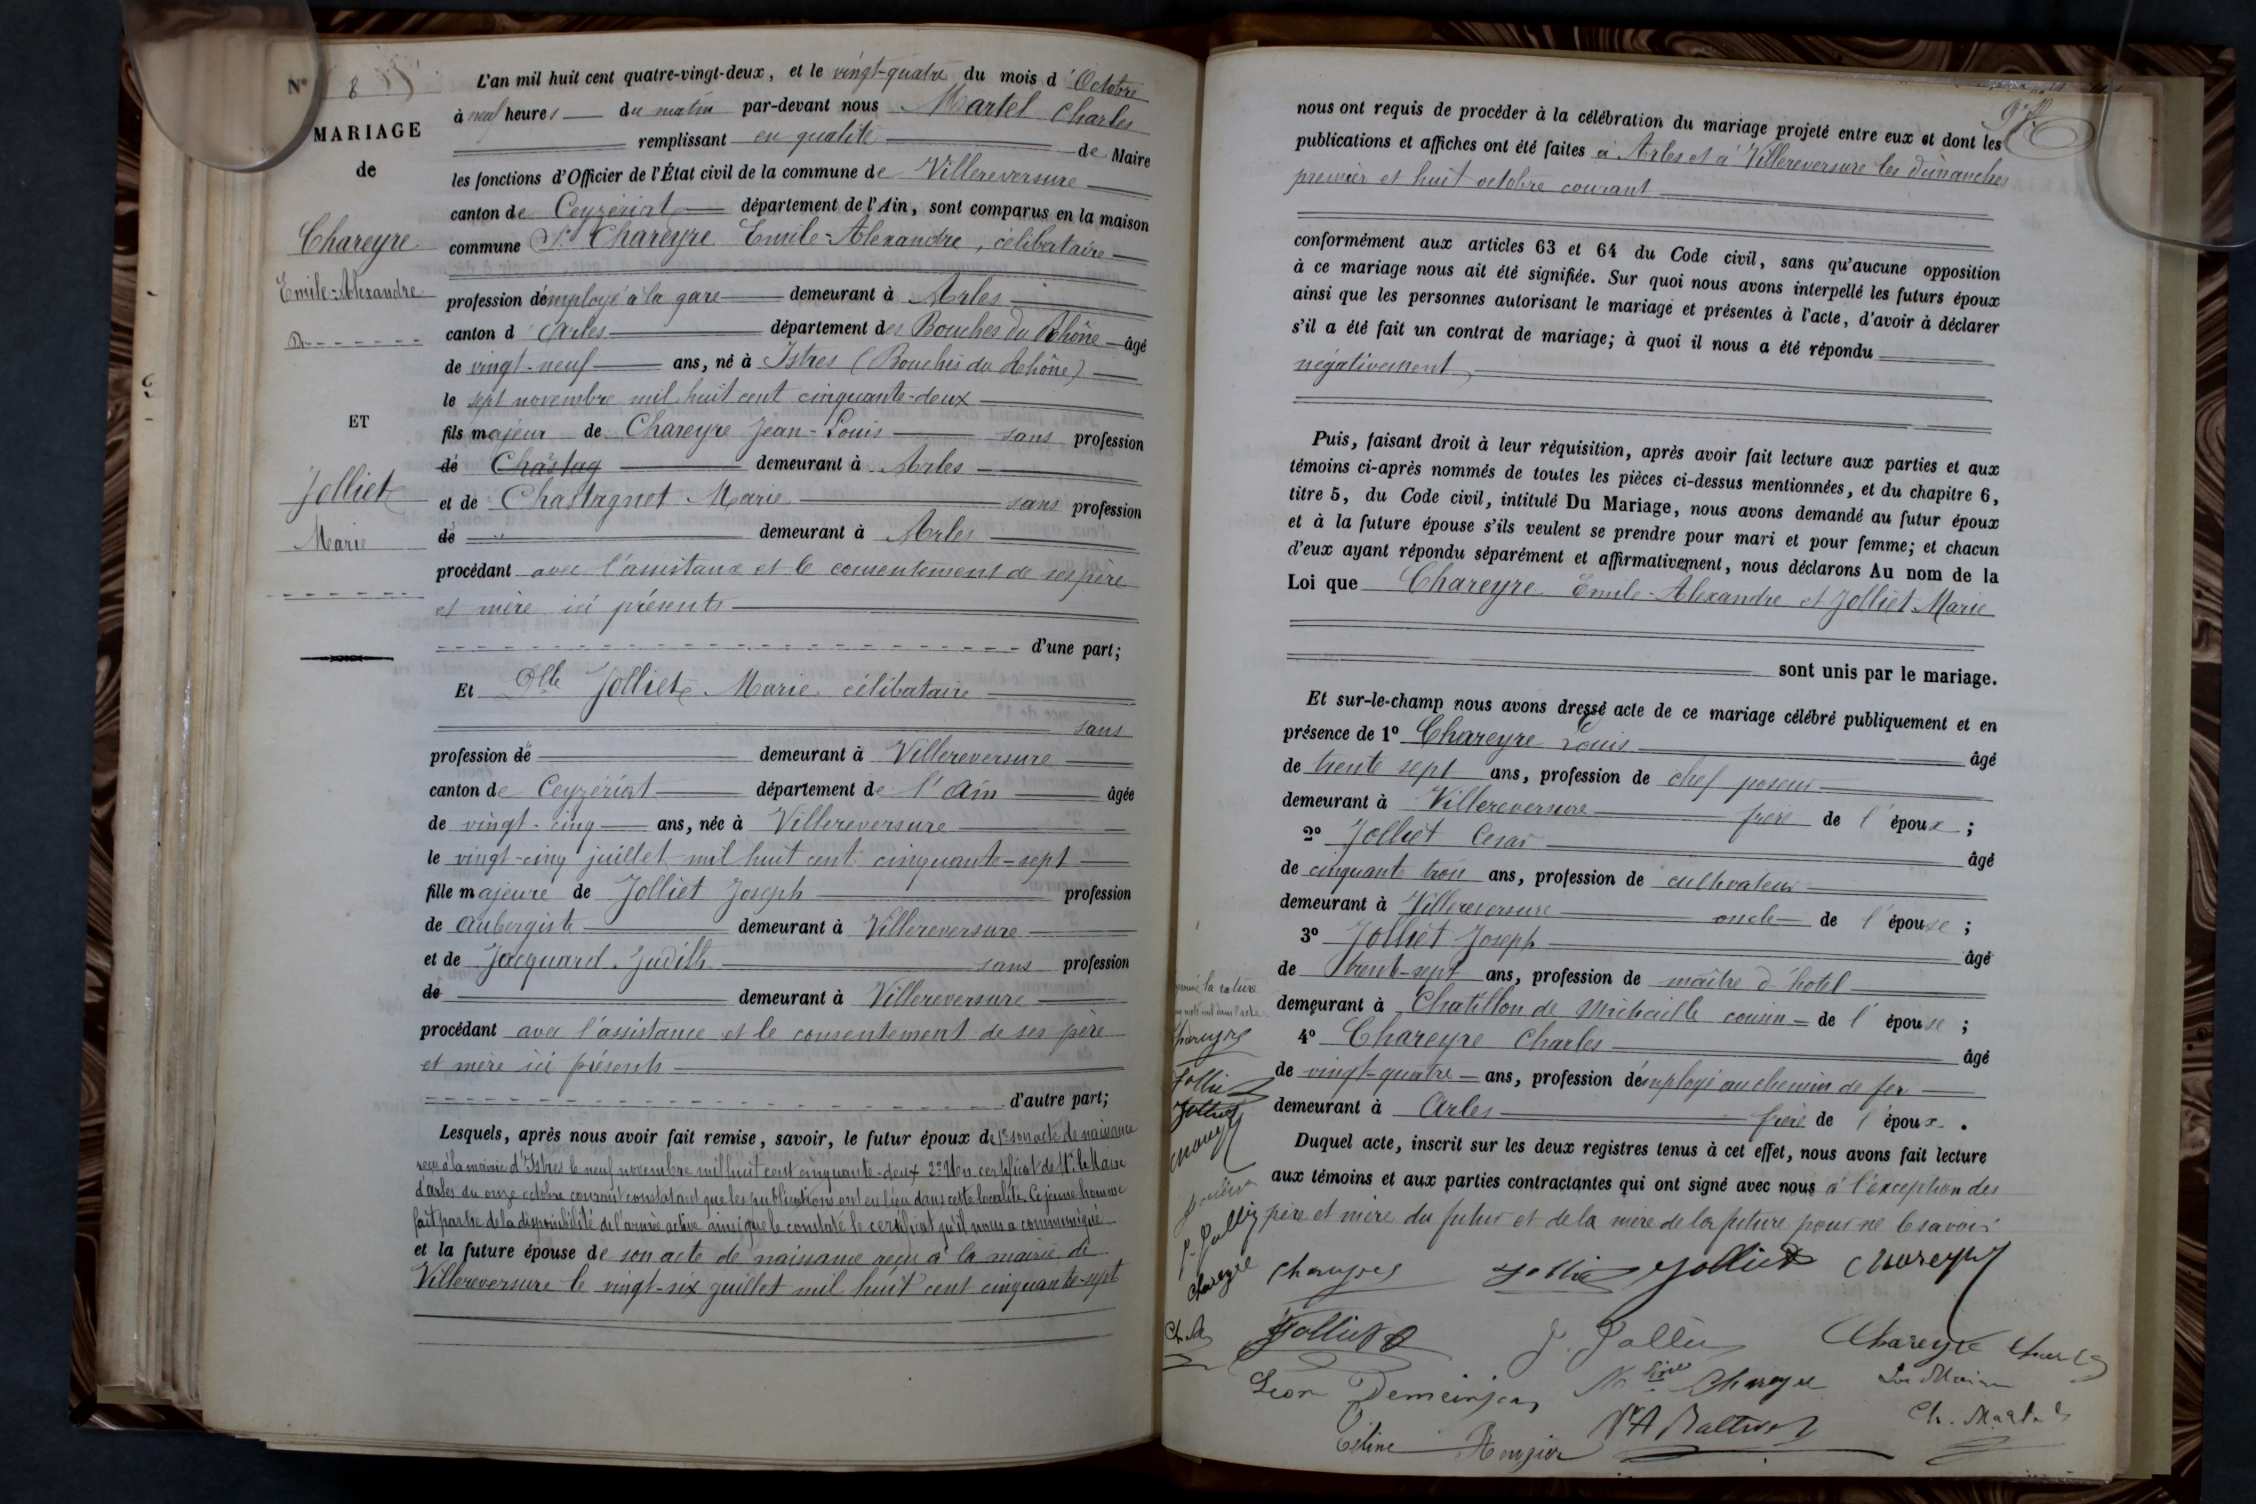 N° 8
MARIAGE
de
Chareyre
Emile-Alexandre
ET
Jolliet
Marie
L'an mil huit cent quatre-vingt-deux, et le vingt-quatre du mois d'Octobre
à neuf heures du matin par-devant nous Martel Charles
remplissant en qualité de Maire
les fonctions d'Officier de l'État civil de la commune de Villereversure
canton de Ceyzériat département de l'Ain, sont comparus en la maison
commune Sr Chareyre Emile-Alexandre, célibataire
profession d'employé à la gare demeurant à Arles
canton d'Arles département des Bouches du Rhône âgé
de vingt-neuf ans, né à Istres (Bouches du Rhône)
le sept novembre mil huit cent cinquante-deux
fils majeur de Chareyre Jean-Louis sans profession
de Chastag demeurant à Arles
et de Chastagnet Marie sans profession
de demeurant à Arles
procédant avec l'assistance et le consentement de ses père
et mère ici présents
d'une part;
Et Dlle Jolliet Marie célibataire
sans
profession de demeurant à Villereversure
canton de Ceyzériat département de l'Ain âgée
de vingt-cinq ans, née à Villereversure
le vingt-cinq juillet mil huit cent cinquante-sept
fille majeure de Jolliet Joseph profession
de aubergiste demeurant à Villereversure
et de Jacquard Judith sans profession
de demeurant à Villereversure
procédant avec l'assistance et le consentement de ses père
et mère ici présents
d'autre part;
Lesquels, après nous avoir fait remise, savoir, le futur époux de 1° son acte de naissance
reçu à la mairie d'Istres le neuf novembre mil huit cent cinquante-deux 2° Un certificat de Mr le Maire
d'Arles du onze octobre courant constatant que les publications ont eu lieu dans cette localité. Ce jeune homme
fait partie de la disponibilité de l'armée active ainsi que le constate le certificat qu'il nous a communiqué
et la future épouse de son acte de naissance reçu à la mairie de
Villereversure le vingt-six juillet mil huit cent cinquante-sept
nous ont requis de procéder à la célébration du mariage projeté entre eux et dont les
publications et affiches ont été faites à Arles et à Villereversure les dimanches
premier et huit octobre courant
conformément aux articles 63 et 64 du Code civil, sans qu'aucune opposition
à ce mariage nous ait été signifiée. Sur quoi nous avons interpellé les futurs époux
ainsi que les personnes autorisant le mariage et présentes à l'acte, d'avoir à déclarer
s'il a été fait un contrat de mariage; à quoi il nous a été répondu
négativement,
Puis, faisant droit à leur réquisition, après avoir fait lecture aux parties et aux
témoins ci-après nommés de toutes les pièces ci-dessus mentionnées, et du chapitre 6,
titre 5, du Code civil, intitulé Du Mariage, nous avons demandé au futur époux
et à la future épouse s'ils veulent se prendre pour mari et pour femme; et chacun
d'eux ayant répondu séparément et affirmativement, nous déclarons Au nom de la
Loi que Chareyre Emile-Alexandre et Jolliet Marie
sont unis par le mariage.
Et sur-le-champ nous avons dressé acte de ce mariage célébré publiquement et en
présence de 1° Chareyre Louis âgé
de trente sept ans, profession de chef poseur
demeurant à Villereversure frère de l'époux;
2° Jolliet Cesar âgé
de cinquante trois ans, profession de cultivateur
demeurant à Villereversure oncle de l'épouse;
3° Jolliet Joseph âgé
de trente-sept ans, profession de maître d'hotel
demeurant à Chatillon de Michaille cousin de l'épouse;
4° Chareyre Charles âgé
de vingt-quatre ans, profession d'employé au chemin de fer
demeurant à Arles frère de l'époux.
Duquel acte, inscrit sur les deux registres tenus à cet effet, nous avons fait lecture
aux témoins et aux parties contractantes qui ont signé avec nous à l'exception des
père et mère du futur et de la mère de la future pour ne le savoir
la rature
Chareyre
Jollie
Jolliet
Chareyre
J. Jollie
Chareyre
Ch. M
Chareyre Jollie Jolliet Chareyre
Jolliet J. Jollie Chareyre Charles
Leon Demeinjean Chareyre Le Maire
Ch. Martel